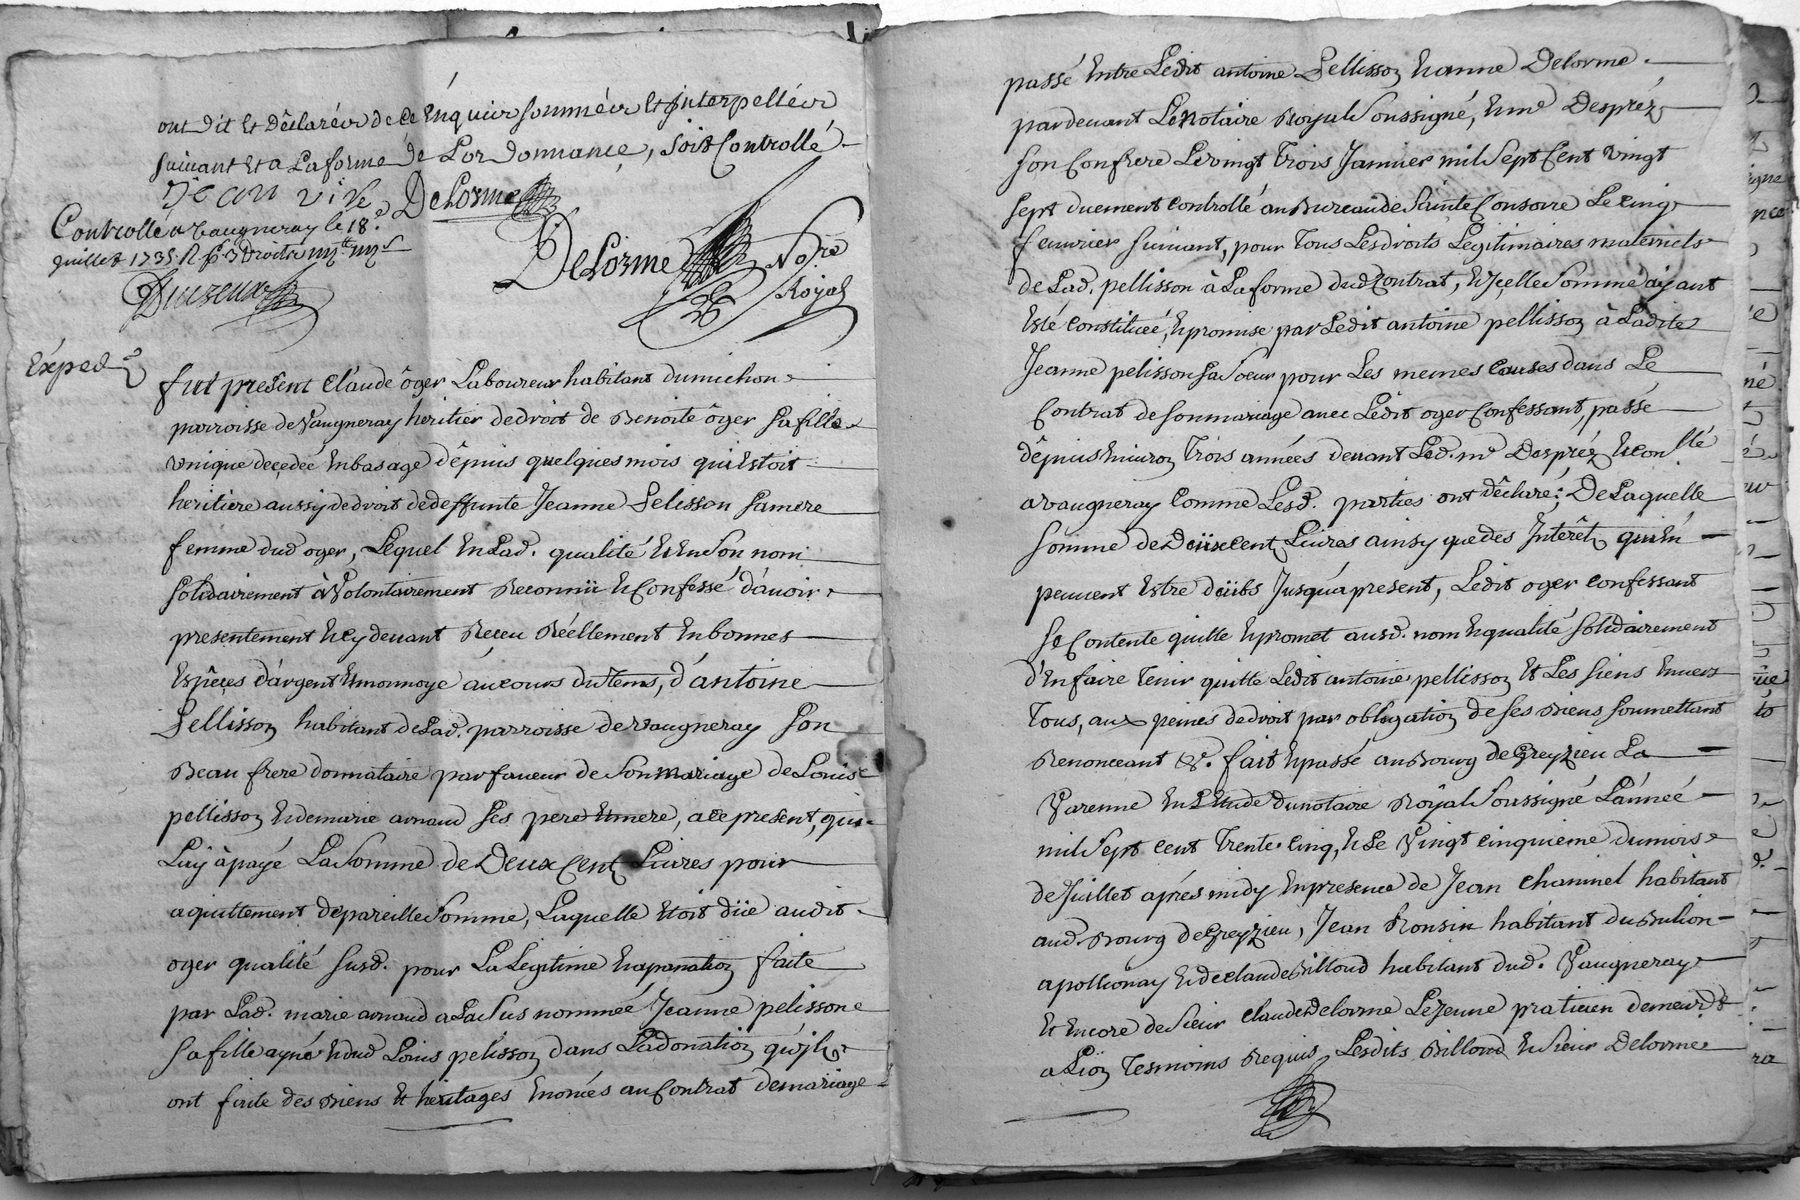 ont dit et dêclaréér de ce énquiir sommééz et jnterpellééz
suivant et a La forme de Lordonnance, soit Controllé
Jean vife DeLorme
Controllé a vaugneray le 18e
juillet 1735 R
DeLorme No.re
Royal
Exped
fut present Claude ôger Laboureur habitant du michon
parroisse de Vaugneray heritier de droit de Benoite ôger sa fille
vnique decedeé en bas age dêpuis quelques mois qui Estoit
heritiere aussy de droit de deffunte Jeanne Pelisson sa mere
femme dud oger, Lequel en Lad. qualité et en son nom
solidairement à Volontairement Reconnü et Confessé d'avoir
presentement et cy devant Reçeu Réellement en bonnes
Espêces d'argent et monnoye au cours du tems, d'antoine
Pellisson habitant de Lad. parroisse de vaugneray son
Beau frere donnataire par faveur de son mariage de Louis
pellisson et de marie arnaud ses pere et mere, a ce present, qui
Luÿ à payé La somme de Deux Cent Livres pour
aquittement de pareille somme, Laquelle êtoit düe audit
oger qualité susd. pour La Legitime et apanation faite
par Lad. marie arnaud a La sus nommeé Jeanne pelisson
sa fille aynée et dud Loüis pelisson dans La donation qu'ils
ont faite des Biens et heritages Enoncés au Contrat de mariage
passé Entre Ledit antoine Pellisson et anne Delorme
pardevant Le Notaire Royal soussigné, et me Despréz
son Confrere Le vingt trois Janvier mil sept Cent vingt
sept duement controllé au Bureau de Sainte Consorce Le cinq
fevvrier suivant, pour tous Les droits Legitimaires maternels
de Lad. pellisson à La forme dud Contrat, et Jçelle somme aÿant
Esté constituéé, et promise par Ledit antoine pellisson à Ladite
Jeanne pelisson sa soeur pour Les memes Causes dans Le
Contrat de son mariage avec Ledit oger Confessant, passé
dêpuis Environ trois années devant Led. me Despréz et conllé
a vaugneray Comme Lesd. parties ont dêclaré; De Laquelle
somme de Deüx cent Livres ainsy que des Intêrêts qui En
peuvent Estre düts Jusqu'a present, Ledit oger confessant
se Contente quitte et promet ausd. nom et qualité solidairement
d'En faire tenir quitte Ledit antoine pellisson et Les siens Envers
tous, aux peines de droit par obligation de ses Biens soumettant
Renonceant &c. fait et passé au Bourg de Greyzieu La
Varenne en L'Etude du notaire Roÿal soussigné L'anneé
mil sept cent trente cinq, et Le Vingt cinquieme du mois
de Juillet aprés midy En presence de Jean Chaminel habitant
aud. Bourg de Greyzieu, Jean Ronsin habitant du Bulion
a pollionay et de claude Billoud habitant dud. Vaugneray
Et Encore de sieur claude Delorme Le Jeune praticien demeurt
a Lïon tesmoins Requis, Lesdits Billoud et sieur Delorme